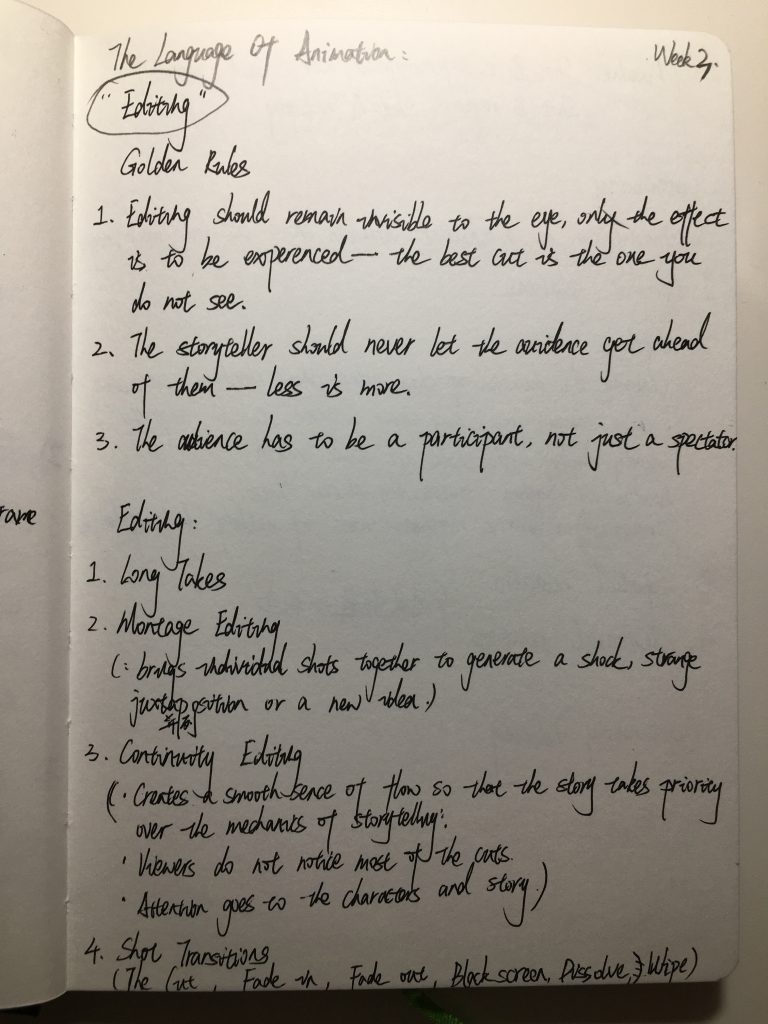 The Language Of Animation:
Week 2.
"Editing"
Golden Rules
1. Editing should remain invisible to the eye, only the effect
is to be experenced — the best cut is the one you
do not see.
2. The storyteller should never let the auidence get ahead
of them — less is more.
3. The audience has to be a participant, not just a spectator.
rame
Editing:
1. Long Takes
2. Montage Editing
(: brings individual shots together to generate a shock, strange
juxtaposition or a new idea.)
并列
3. Continuity Editing
(· Creates a smooth sence of flow so that the story takes priority
over the mechanics of storytelling.
· Viewers do not notice most of the cuts.
· Attention goes to the characters and story.)
4. Shot Transitions
(The Cut, Fade in, Fade out, Black screen, Dissolve, Wipe)